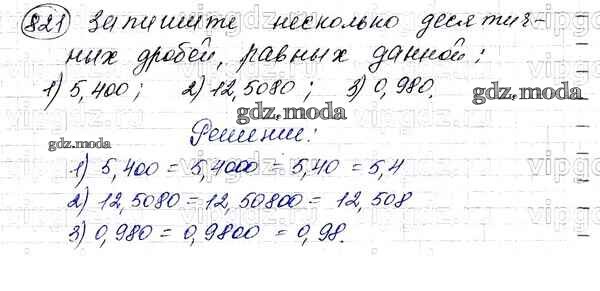 821 Запишите несколько десятич-
ных дробей, равных данной:
1) 5,400; 2) 12,5080; 3) 0,980.
gdz.moda gdz.moda gdz.moda
Решение:
1) 5,400 = 5,4000 = 5,40 = 5,4
2) 12,5080 = 12,50800 = 12,508
3) 0,980 = 0,9800 = 0,98.
gdz.moda gdz.moda